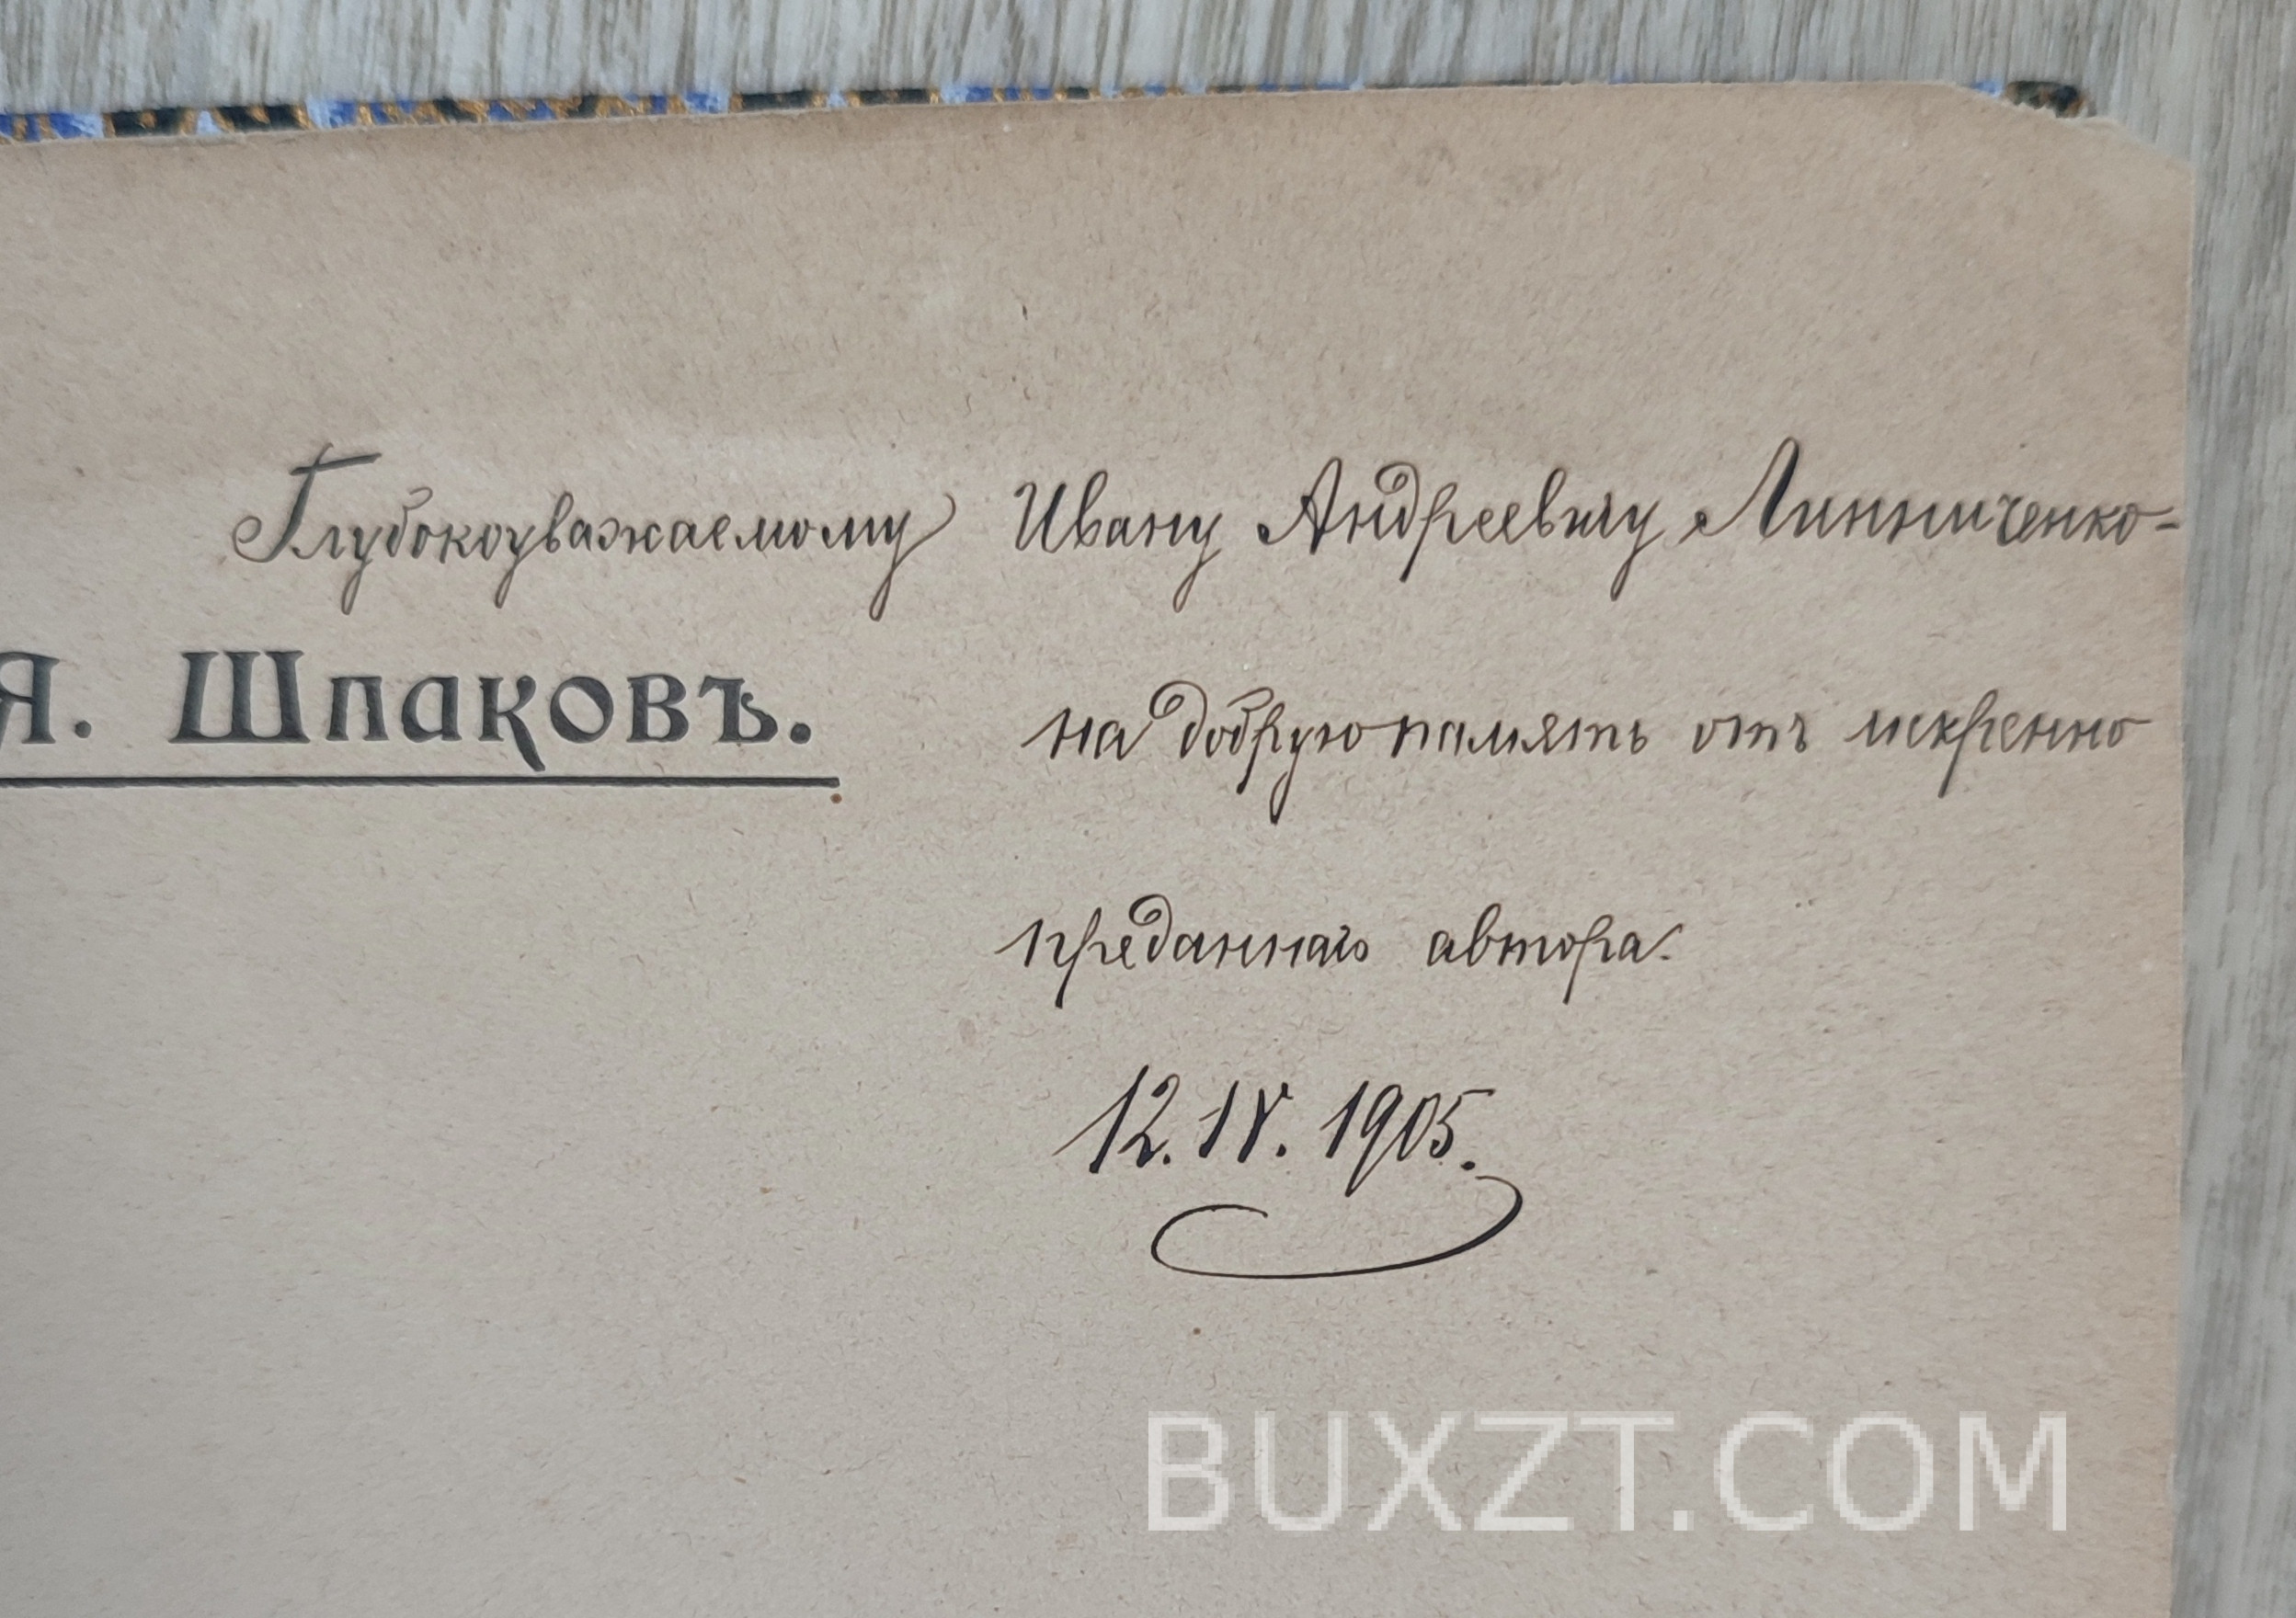 Глубокоуважаемому Ивану Андреевичу Линниченко-
Я. Шпаковъ.
на добрую память отъ искренно
преданнаго автора.
12. IV. 1905.
BUXZT.COM